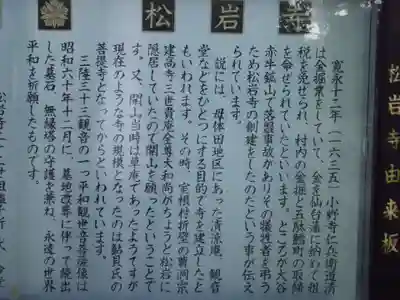 松岩寺由来板
松岩
寛永十二年(一六三五)小野寺仁兵衛道清
は金掘業をしていて、金を仙台藩に納めて租
税を免ぜられ、村内の金掘と五駄鱈町の取締
を命ぜられていたといいます。ところが大谷
赤牛鉱山で落盤事故がありその犠牲者を弔う
ため松岩寺の創建をしたのだという事が伝え
られています。
説には、母体田地区にあった清涼庵、観音
堂などをひとつにする目的で寺を建立したと
もいわれます。その時、室根村折壁の曹洞宗
建高寺三世貴庵全尊大和尚がちょうど松岩に
隠居していたので開山を願ったということで
す。又、開山当時は草庵であったようですが
現在のような寺の規模となったのは鮎貝氏の
菩提寺となってからといわれています。
三陸三十三観音の一つ平和観世音菩薩像は
昭和六十年十二月に、墓地改葬に伴って続出
した墓石、無縁塔の守護を兼ね、永遠の世界
平和を祈願したものです。
松岩寺二十二世